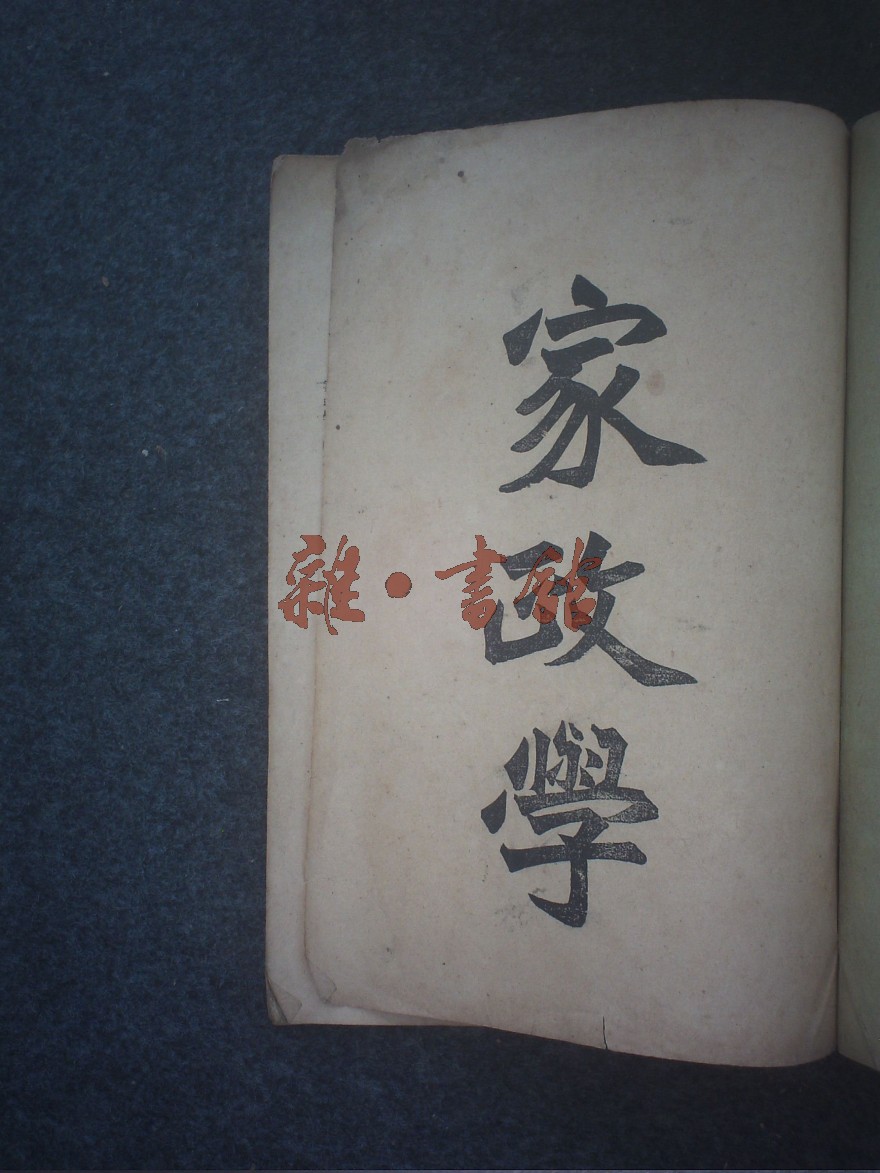 家政學
雜·書館